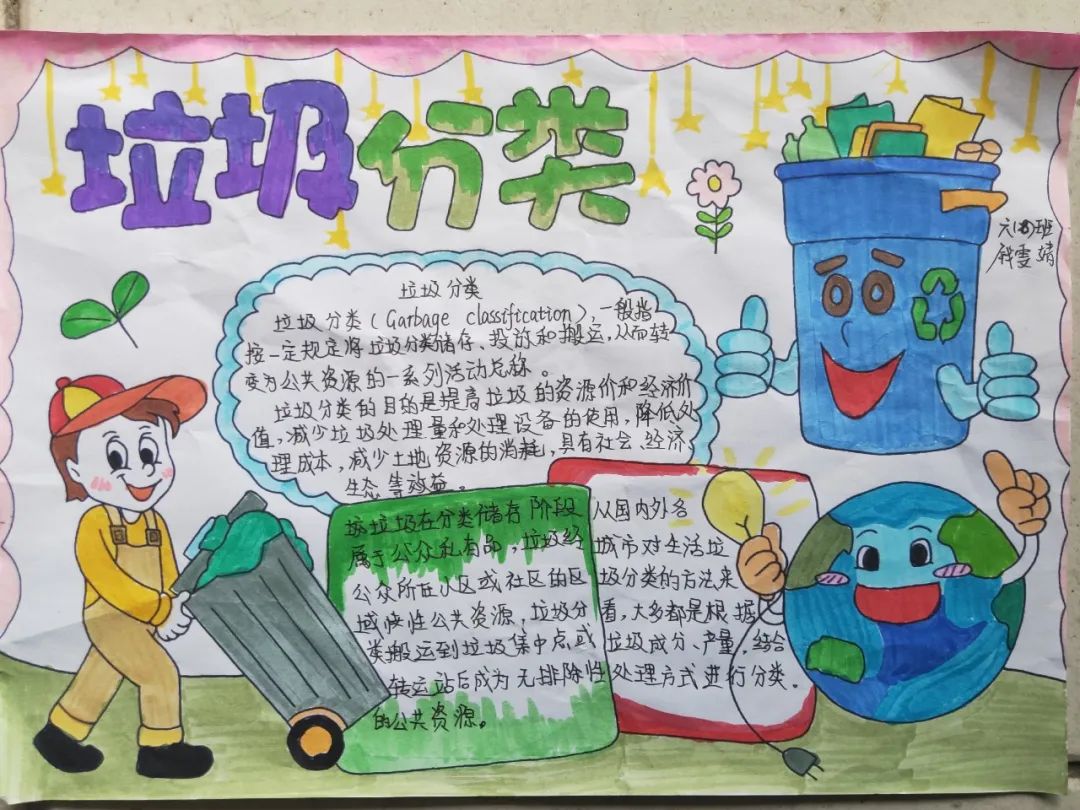 垃圾分类
六(4)班
钱雯婧
垃圾分类
垃圾分类(Garbage classification),一般指
按一定规定将垃圾分类储存、投放和搬运,从而转
变为公共资源的一系列活动总称。
垃圾分类的目的是提高垃圾的资源价和经济价
值,减少垃圾处理量和处理设备的使用,降低处
理成本,减少土地资源的消耗,具有社会、经济、
生态等效益。
垃圾在分类储存阶段
属于公众私有品,垃圾经
公众所在小区或社区的区
域性公共资源,垃圾分
类搬运到垃圾集中点或
转运站后成为无排除性
的公共资源。
从国内外各
城市对生活垃
圾分类的方法来
看,大多都是根据
垃圾成分、产量,结合
处理方式进行分类.